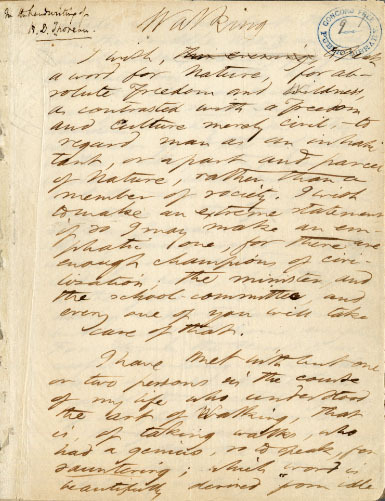 In the handwriting of
H. D. Thoreau.
Walking
CONCORD FREE PUBLIC LIBRARY
2
I wish, this evening, to speak
a word for Nature, for ab-
solute Freedom and Wildness,
as contrasted with a Freedom
and Culture merely civil — to
regard man as an inhabi-
tant, or a part and parcel
of Nature, rather than a
member of society. I wish
to make an extreme statement
if so I may make an em-
phatic one, for there are
enough champions of civi-
lization; the minister and
the school-committee, and
every one of you will take
care of that.
I have met with but one
or two persons in the course
of my life who understood
the art of Walking, that
is, of taking walks, who
had a genius, so to speak, for
sauntering; which word is
beautifully derived from idle